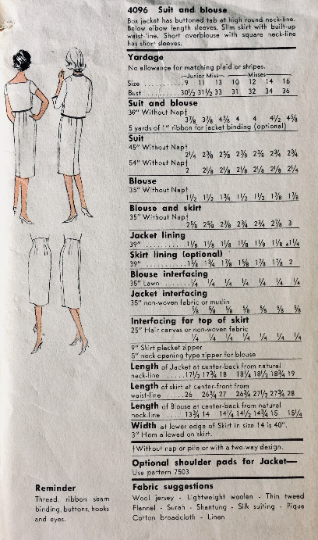 4096 Suit and blouse
Box jacket has buttoned tab at high round neck-line.
Below elbow length sleeves. Slim skirt with built-up
waist-line. Short overblouse with square neck-line
has short sleeves.
Yardage
No allowance for matching plaid or stripes.
Junior Miss Misses
Size 9 11 13 10 12 14 16
Bust 30½ 31½ 33 31 32 34 36
Suit and blouse
36" Without Nap†
3⅞ 4 4 4½ 4⅝
5 yards of 1" ribbon for jacket binding (optional)
Suit
45" Without Nap†
2¼ 2⅜ 2⅝ 2¾
54" Without Nap†
2 2⅛ 2⅛ 2⅛ 2⅛ 2¼
Blouse
35" Without Nap†
1½ 1½ 1¾ 1½ 1½
Blouse and skirt
35" Without Nap†
2⅝ 2¾ 3
Jacket lining
39" 1⅛
Skirt lining (optional)
39" 2
Blouse interfacing
35" Lawn ¼ ¼ ¼ ¼ ¼ ¼ ¼
Jacket interfacing
35" non-woven fabric or muslin
⅝ ⅝ ⅝ ⅝ ⅝ ⅝
Interfacing for top of skirt
25" Hair canvas or non-woven fabric
¼ ¼ ¼ ¼ ¼ ¼ ¼
9" Skirt placket zipper
5" neck opening type zipper for blouse
Length of Jacket at center-back from natural
neck-line 17½ 17¾ 18 18¼ 18½ 18¾ 19
Length of skirt at center-front from
waist-line 26 26¾ 27 26¾ 27½ 27¾ 28
Length of Blouse at center-back from natural
neck-line 13¾ 14 14¼ 14½ 14¾ 15 15¼
Width at lower edge of Skirt in size 14 is 40".
3" Hem allowed on skirt.
†Without nap or pile or with a two-way design.
Optional shoulder pads for Jacket—
Use pattern 7503
Reminder
Thread, ribbon seam
binding, buttons, hooks
and eyes.
Fabric suggestions
Wool jersey - Lightweight woolen - Thin tweed
Flannel - Surah - Shantung - Silk suiting - Pique
Cotton broadcloth - Linen